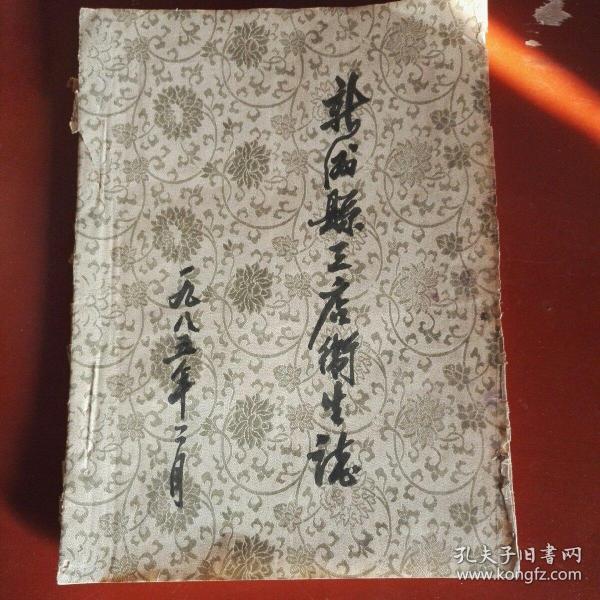 新洲縣三店衛生誌
一九八五年二月
孔夫子旧書网
www.kongfz.com